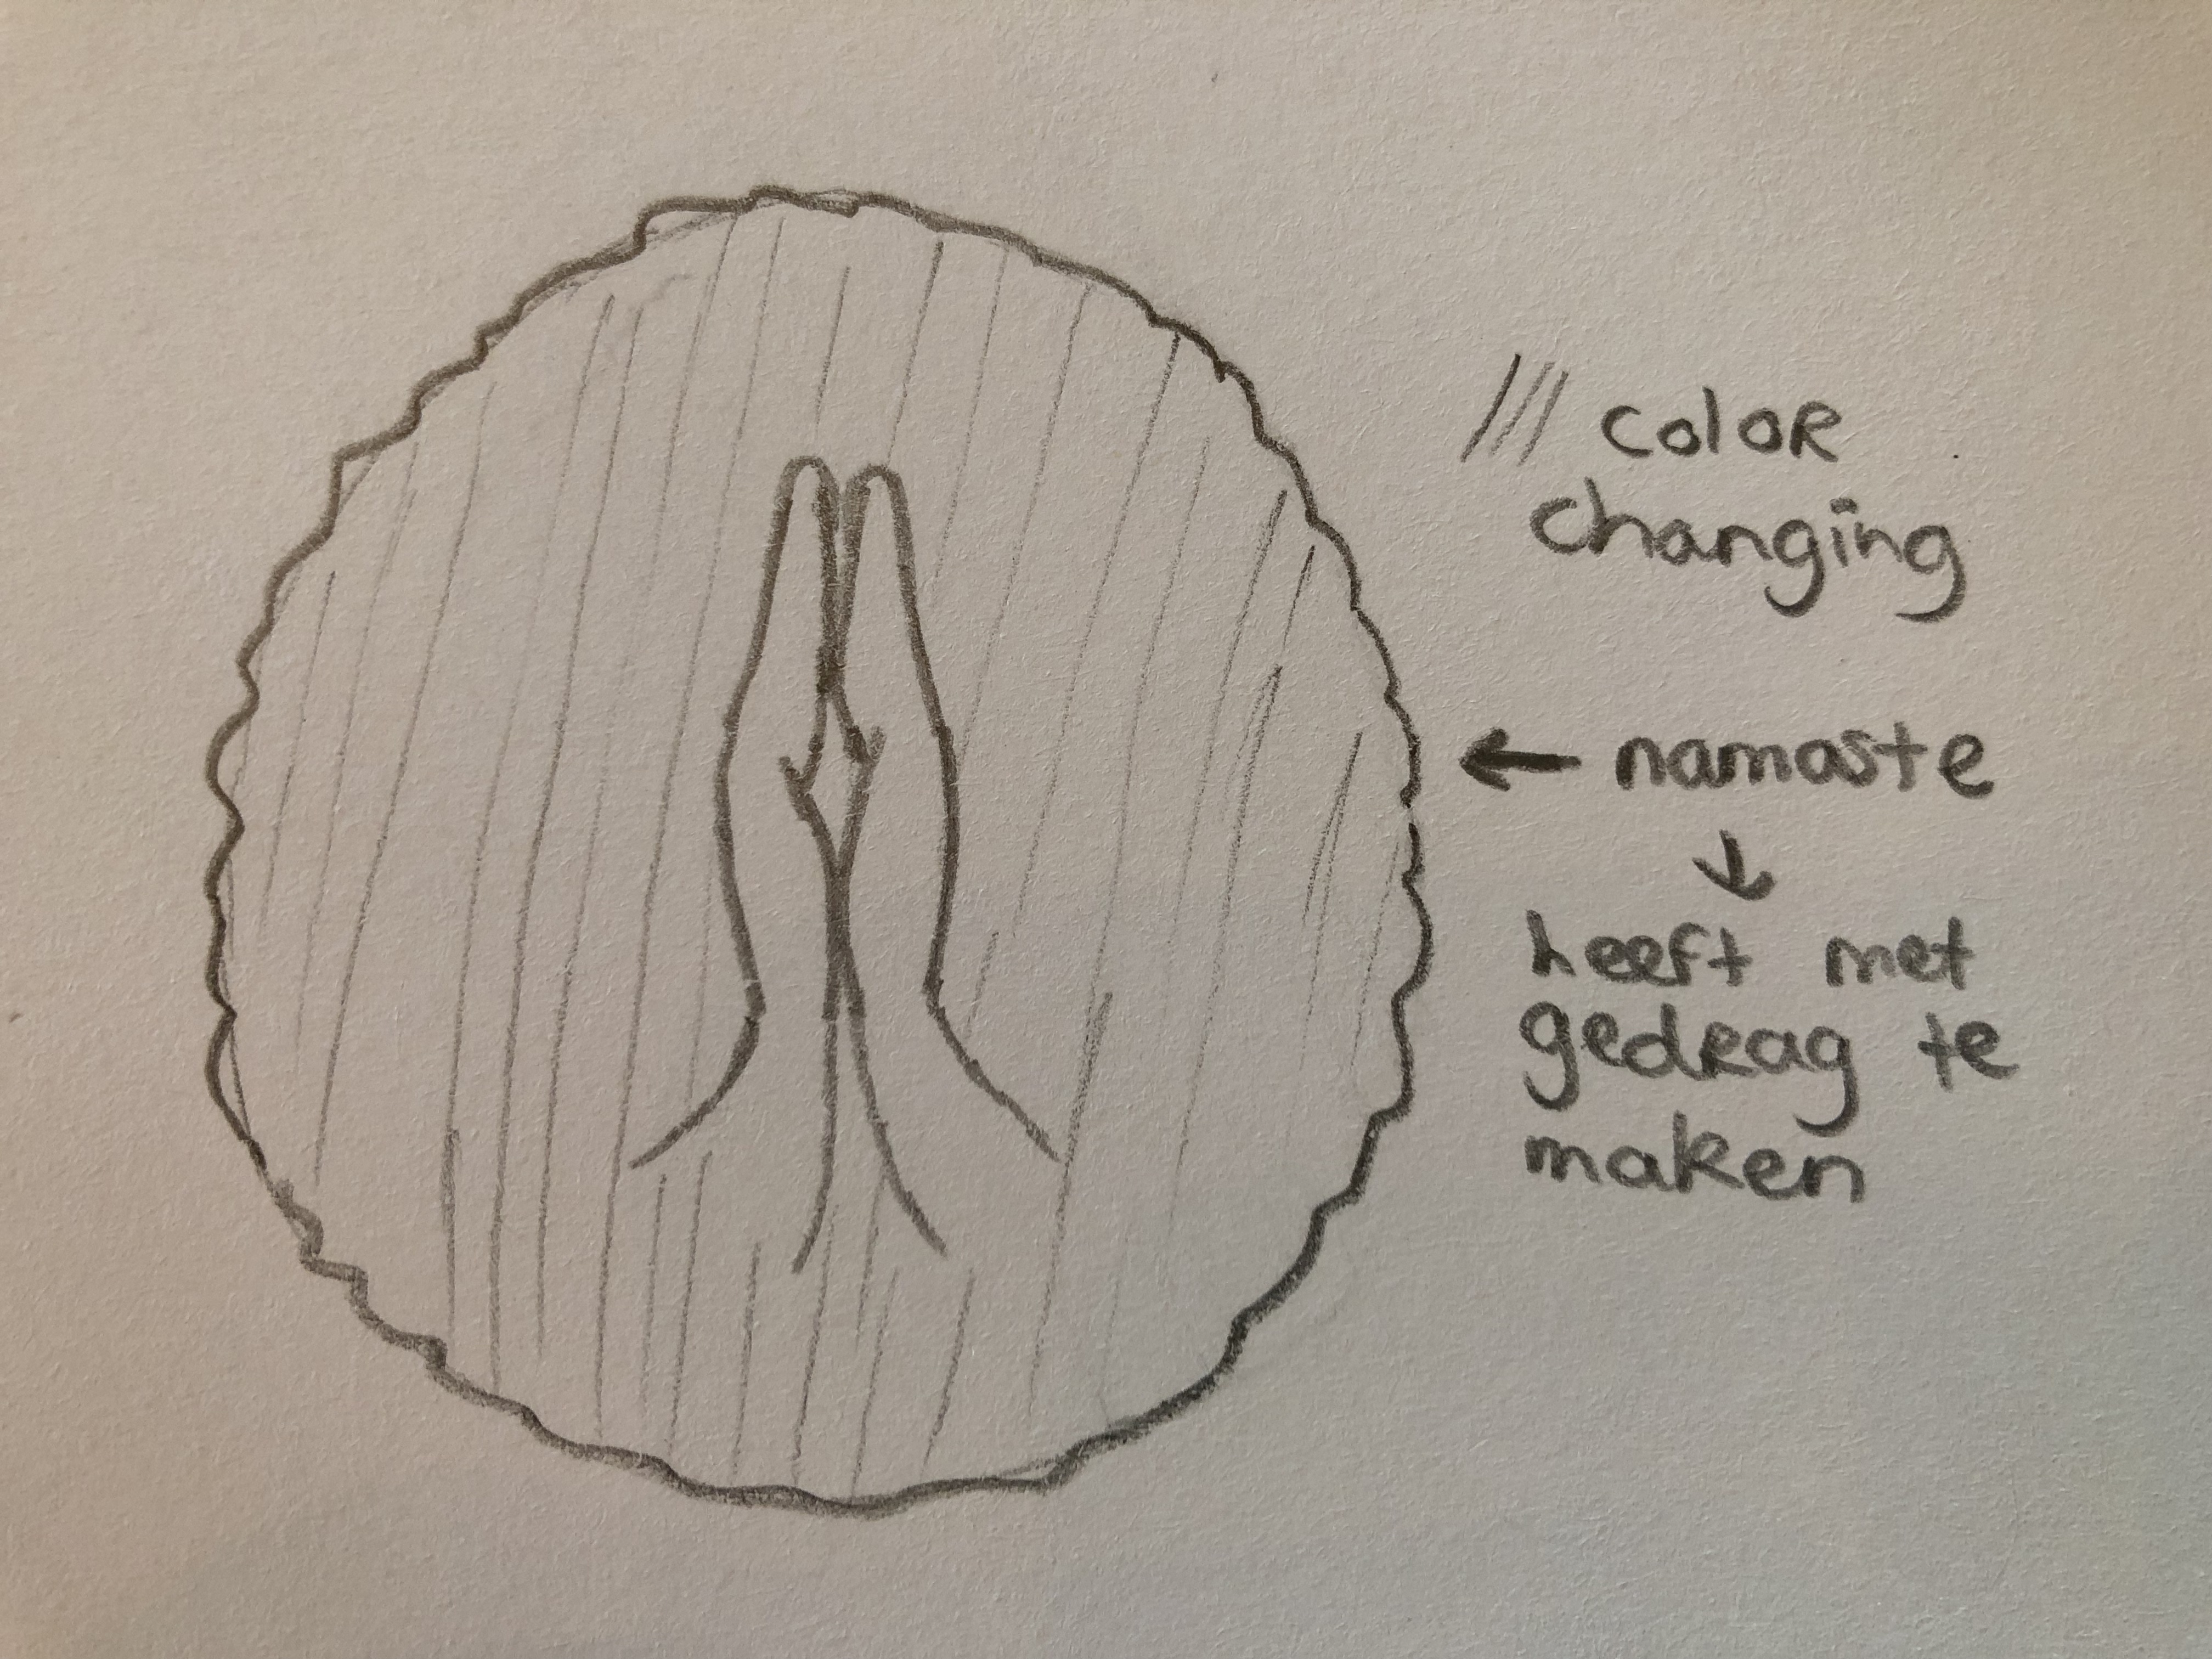 color
changing
namaste
heeft met
gedrag te
maken